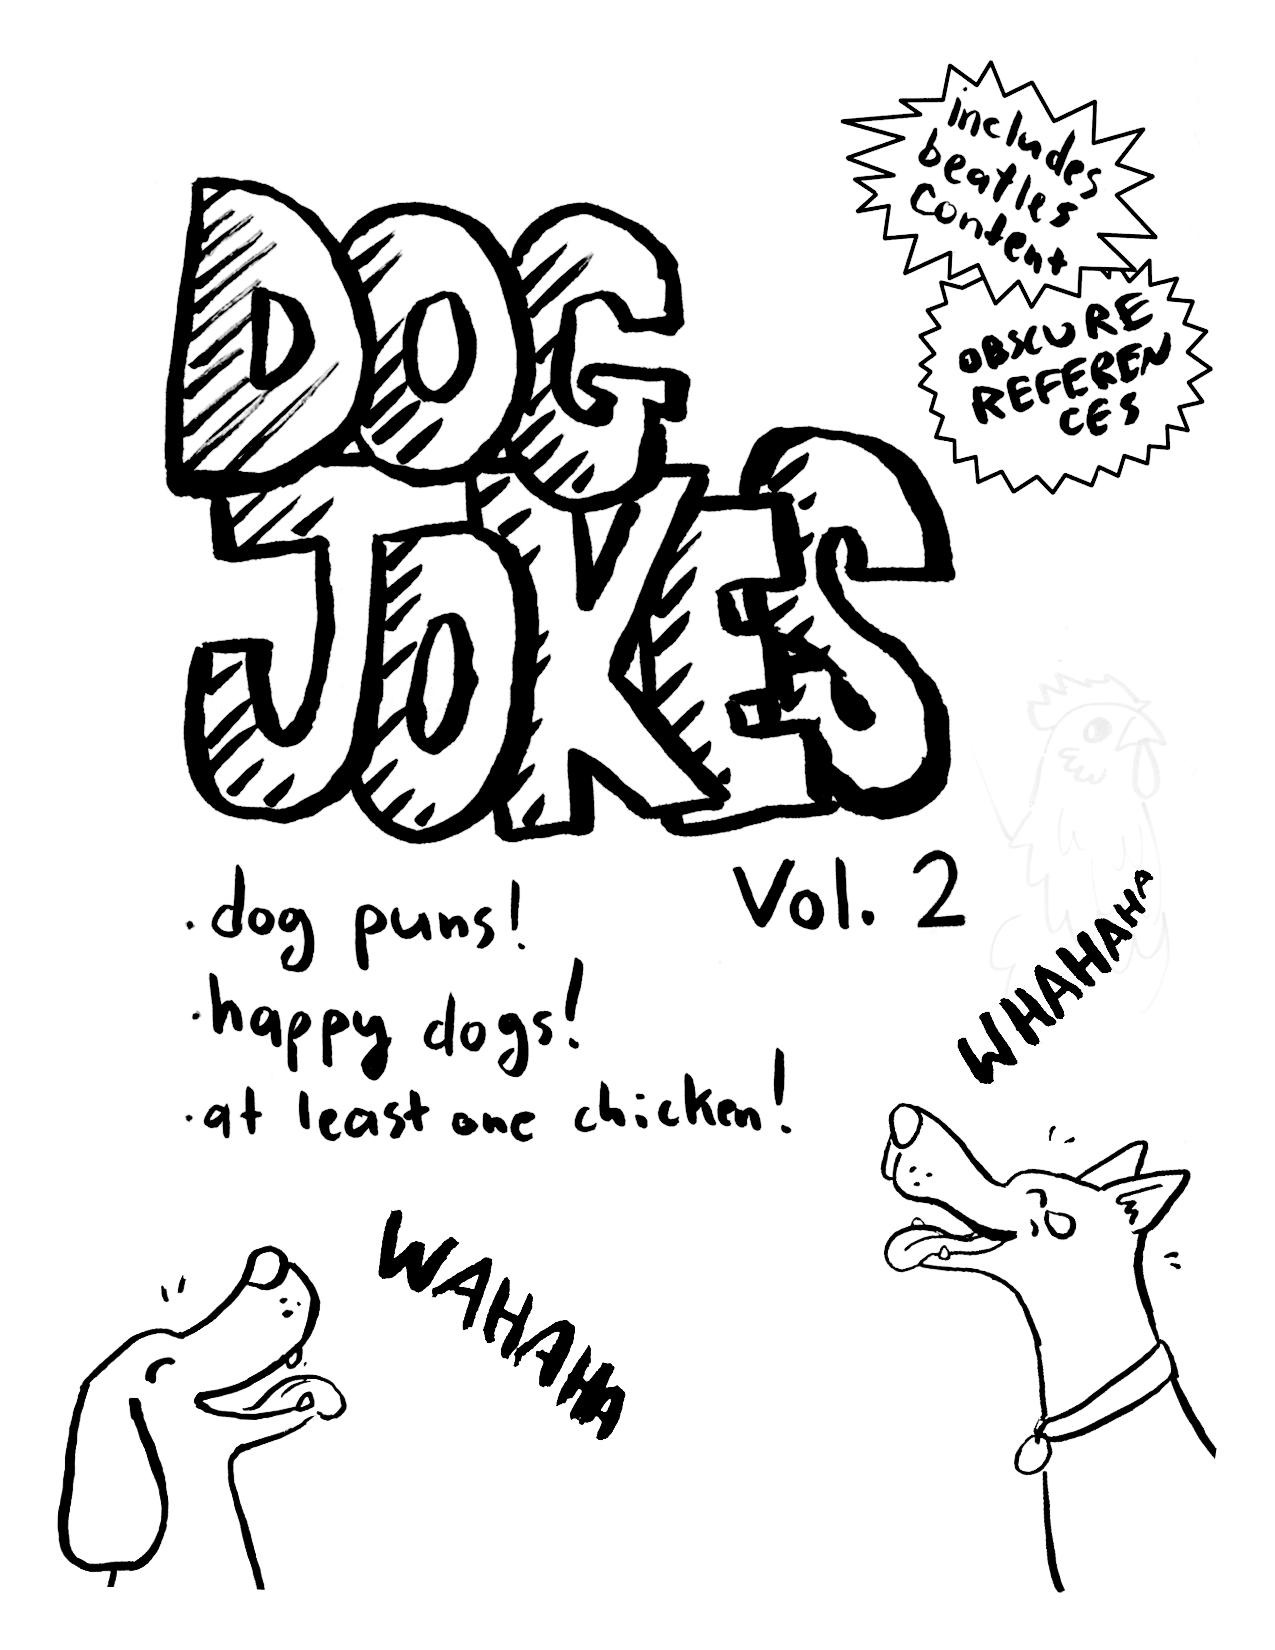 includes
beatles
content
OBSCURE
REFEREN
CES
DOG
JOKES
Vol. 2
• dog puns!
• happy dogs!
• at least one chicken!
WHAHAHAHA
WAHAHAHA